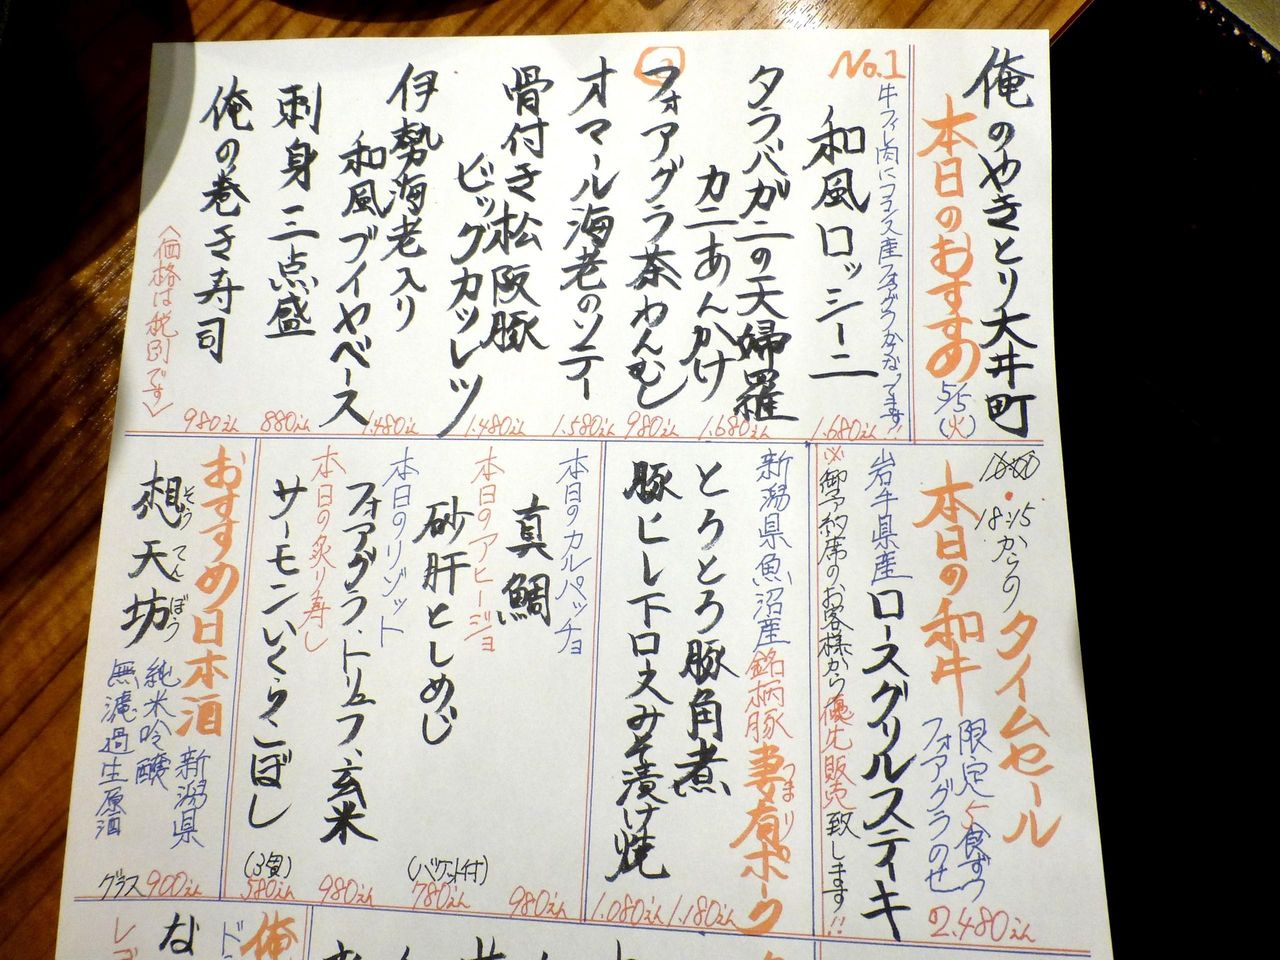 俺のやきとり大井町
本日のおすすめ
5/5(火)
No.1
牛フィレ肉にフランス産フォアグラかなってます!!
和風ロッシーニ
1.680えん
タラバガニの天婦羅
カニあんかけ
1.680えん
フォアグラ茶わんむし
980えん
オマール海老のソテー
1.580えん
骨付き松阪豚
ビッグカツレツ
1.480えん
伊勢海老入り
和風ブイヤベース
1.480えん
刺身三点盛
880えん
俺の巻き寿司
980えん
〈価格は税別です〉
18:15からの
タイムセール
本日の和牛
限定5食ずつ
フォアグラのせ
2.480えん
岩手県産ロースグリルステーキ
※御予約席のお客様から優先販売致します!!
新潟県魚沼産銘柄豚妻有ポーク
つまり
とろとろ豚角煮
1.180えん
豚ヒレ下ロースみそ漬け焼
1.080えん
本日のカルパッチョ
真鯛
980えん
本日のアヒージョ
砂肝としめじ
(バケット付)
780えん
本日のリゾット
フォアグラ、トリュフ、玄米
980えん
本日の炙り寿し
サーモンいくらこぼし
(3貫)
580えん
おすすめ日本酒
新潟県
想天坊
そうてんぼう
純米吟醸
無濾過生原酒
グラス900えん
俺
ド
な
レ